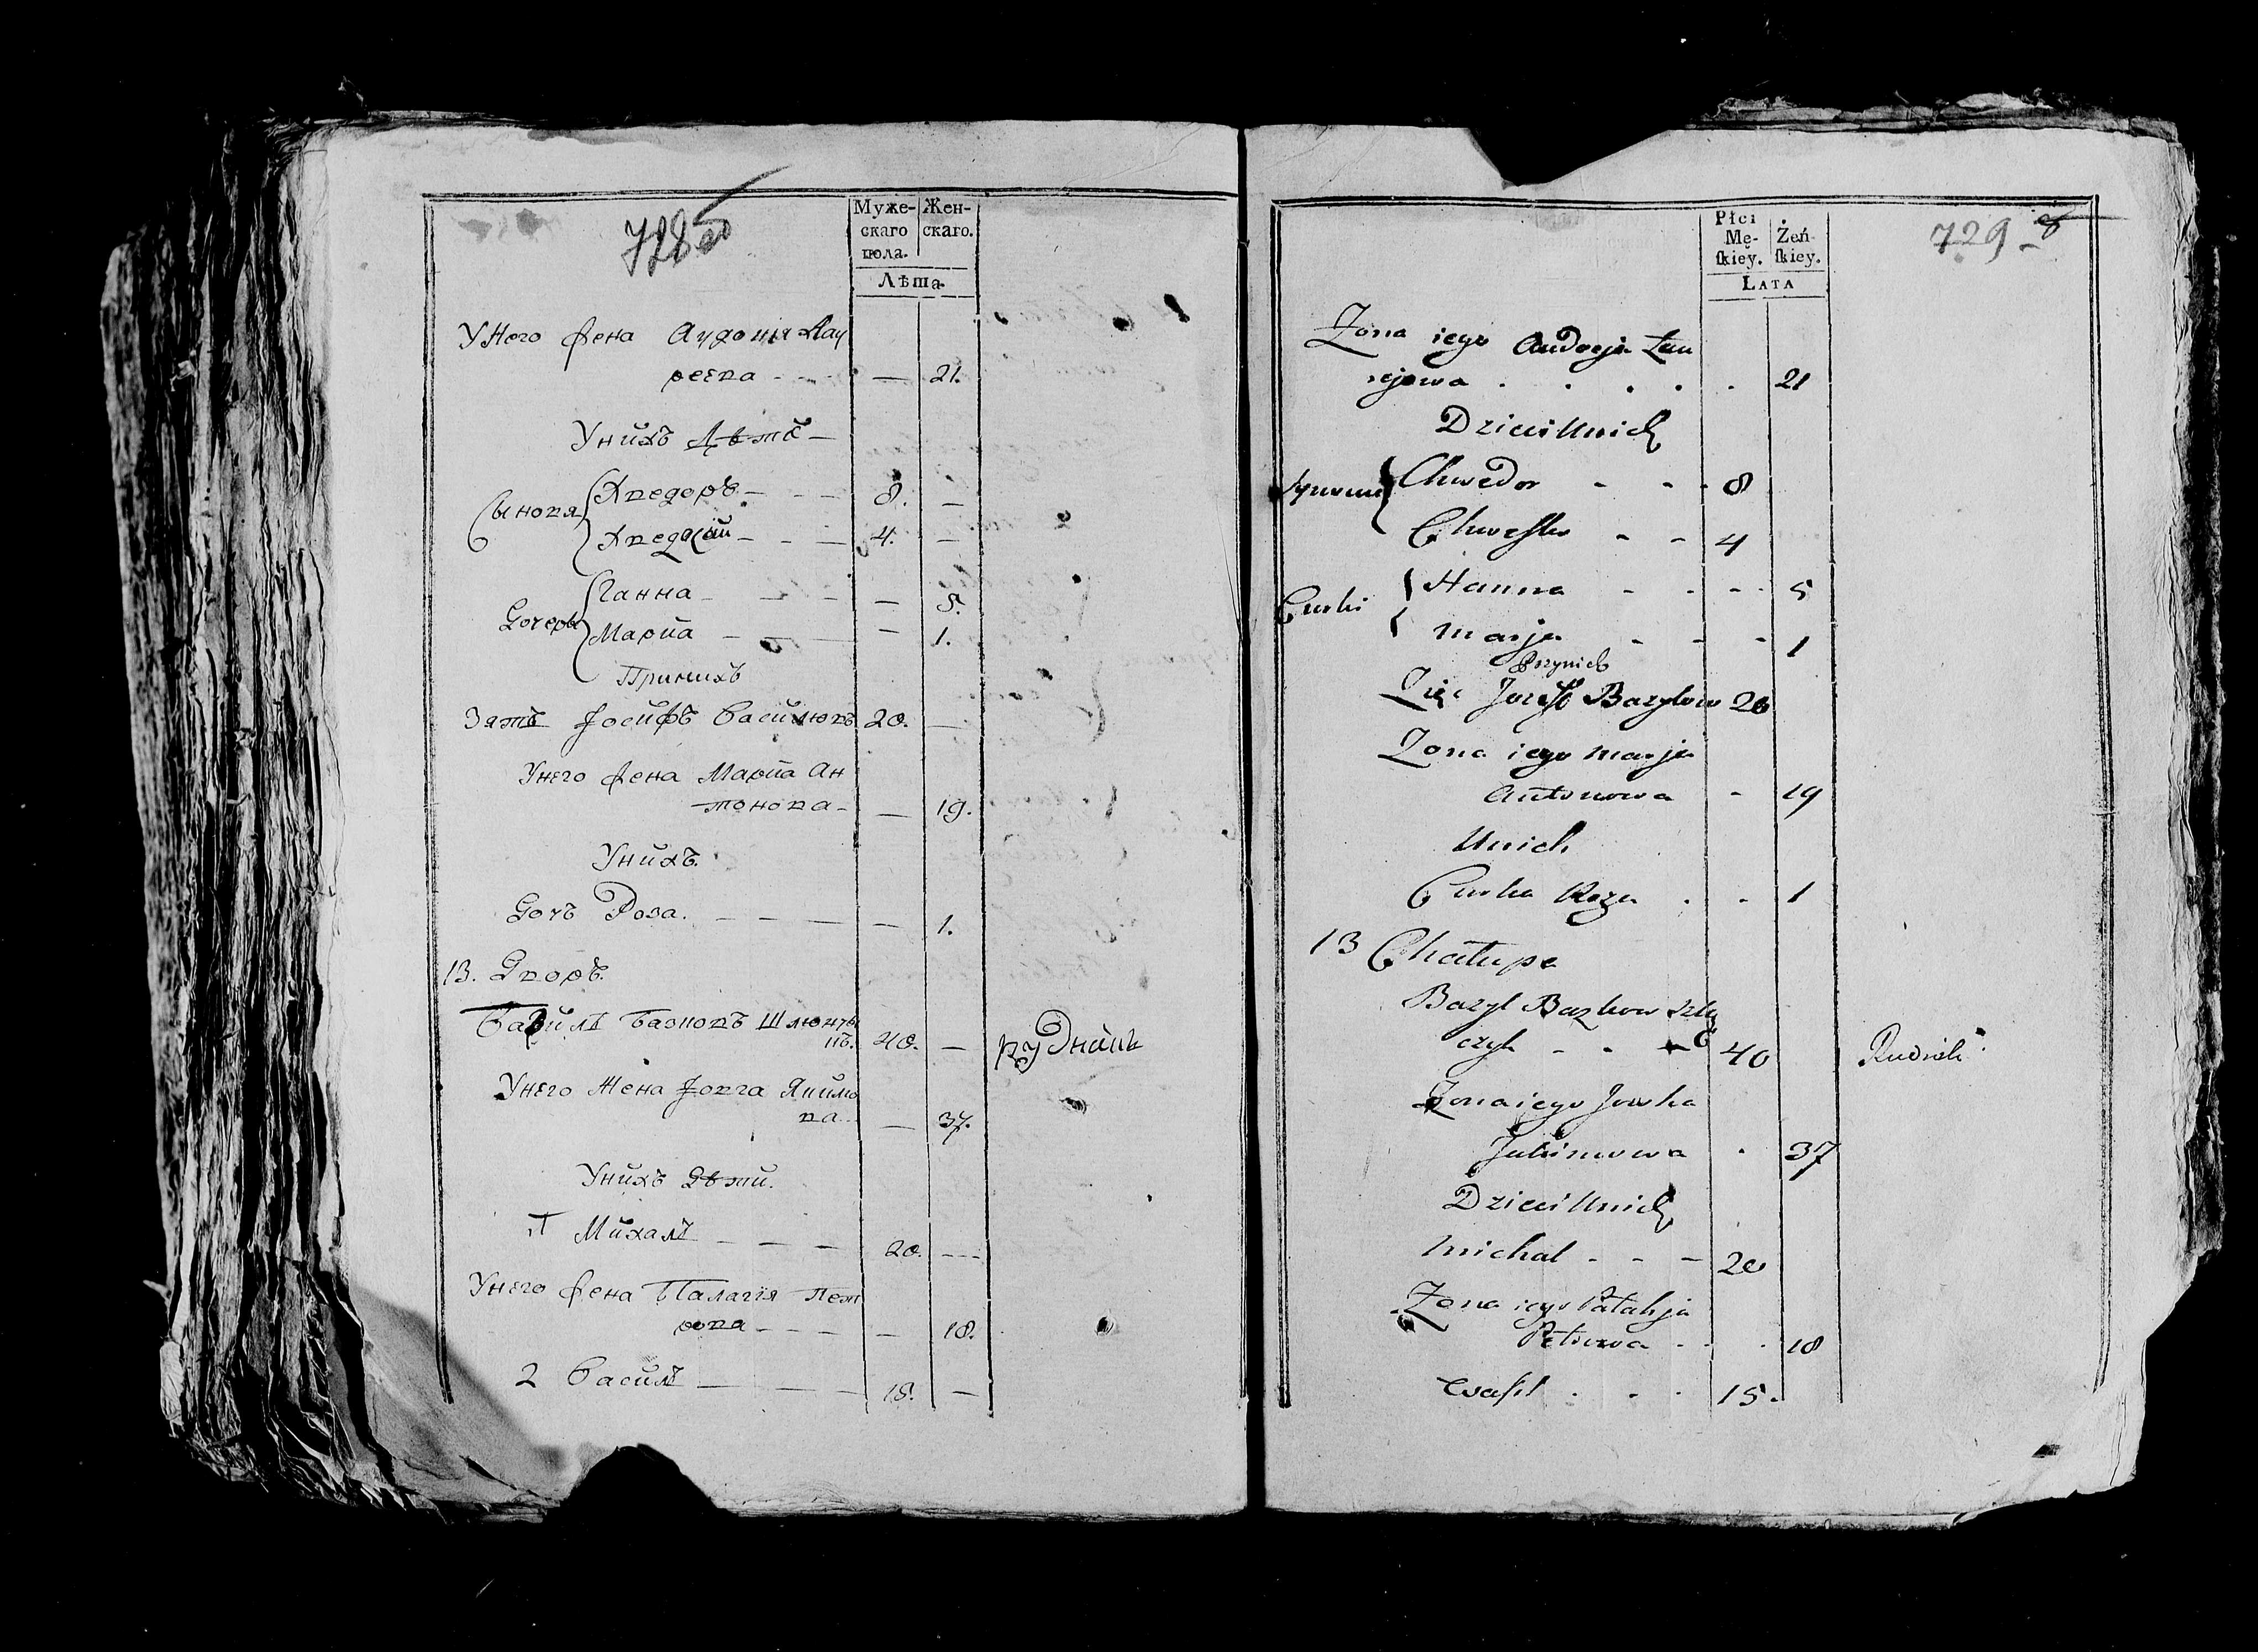 728 об
Муже-
скаго
пола.
Жен-
скаго.
Лѣта.
У Него жена Аудоція Лау
реева - - - — 21.
Унихъ Дѣти —
Сыновя Хведоръ - - - 8. —
4. —
Дочеры Ганна - - - — 5.
Марйа — — — 1.
Принихъ
Зять Іосифъ Василювъ 20. —
Унего жена Марйа Ан
тонова - — 19.
Унихъ
Дочъ Роза. — — — — 1.
13. Дворъ.
Базиль Базповъ
40. — рудникъ
Унего Жена Іовга Якимо
ва.. — 37.
Унихъ Дѣти.
Михалъ — — — 20. ---
Унего жена Палагія Пет
рова - - - — 18.
2 Василь — — — 15. —
729
Płci
Mę-
ſkiey.
Żeń-
ſkiey.
LATA
Zona iego Audocja Łau
rejowa . . . . . 21
Dzieci Unich
Synowie Chwedor - - - 8
Chwesko - - 4
Curki Hanna - - - - 5
Marja - - - 1
Przynich
Zięć Jozeff Bazylow 20
Zona iego Marja
Antonowa - 19
Unich
Curka Roza . . 1
13 Chałupa
Bazyl Bazkow Szlu
czyk - - - 40 Rudnik
Zona iego Jowka
Jakimowa . 37
Dzieci Unich
Michał - - - 20
Zona iego Pałahja
Petrowa - - . 18
Wasil . . . 15.